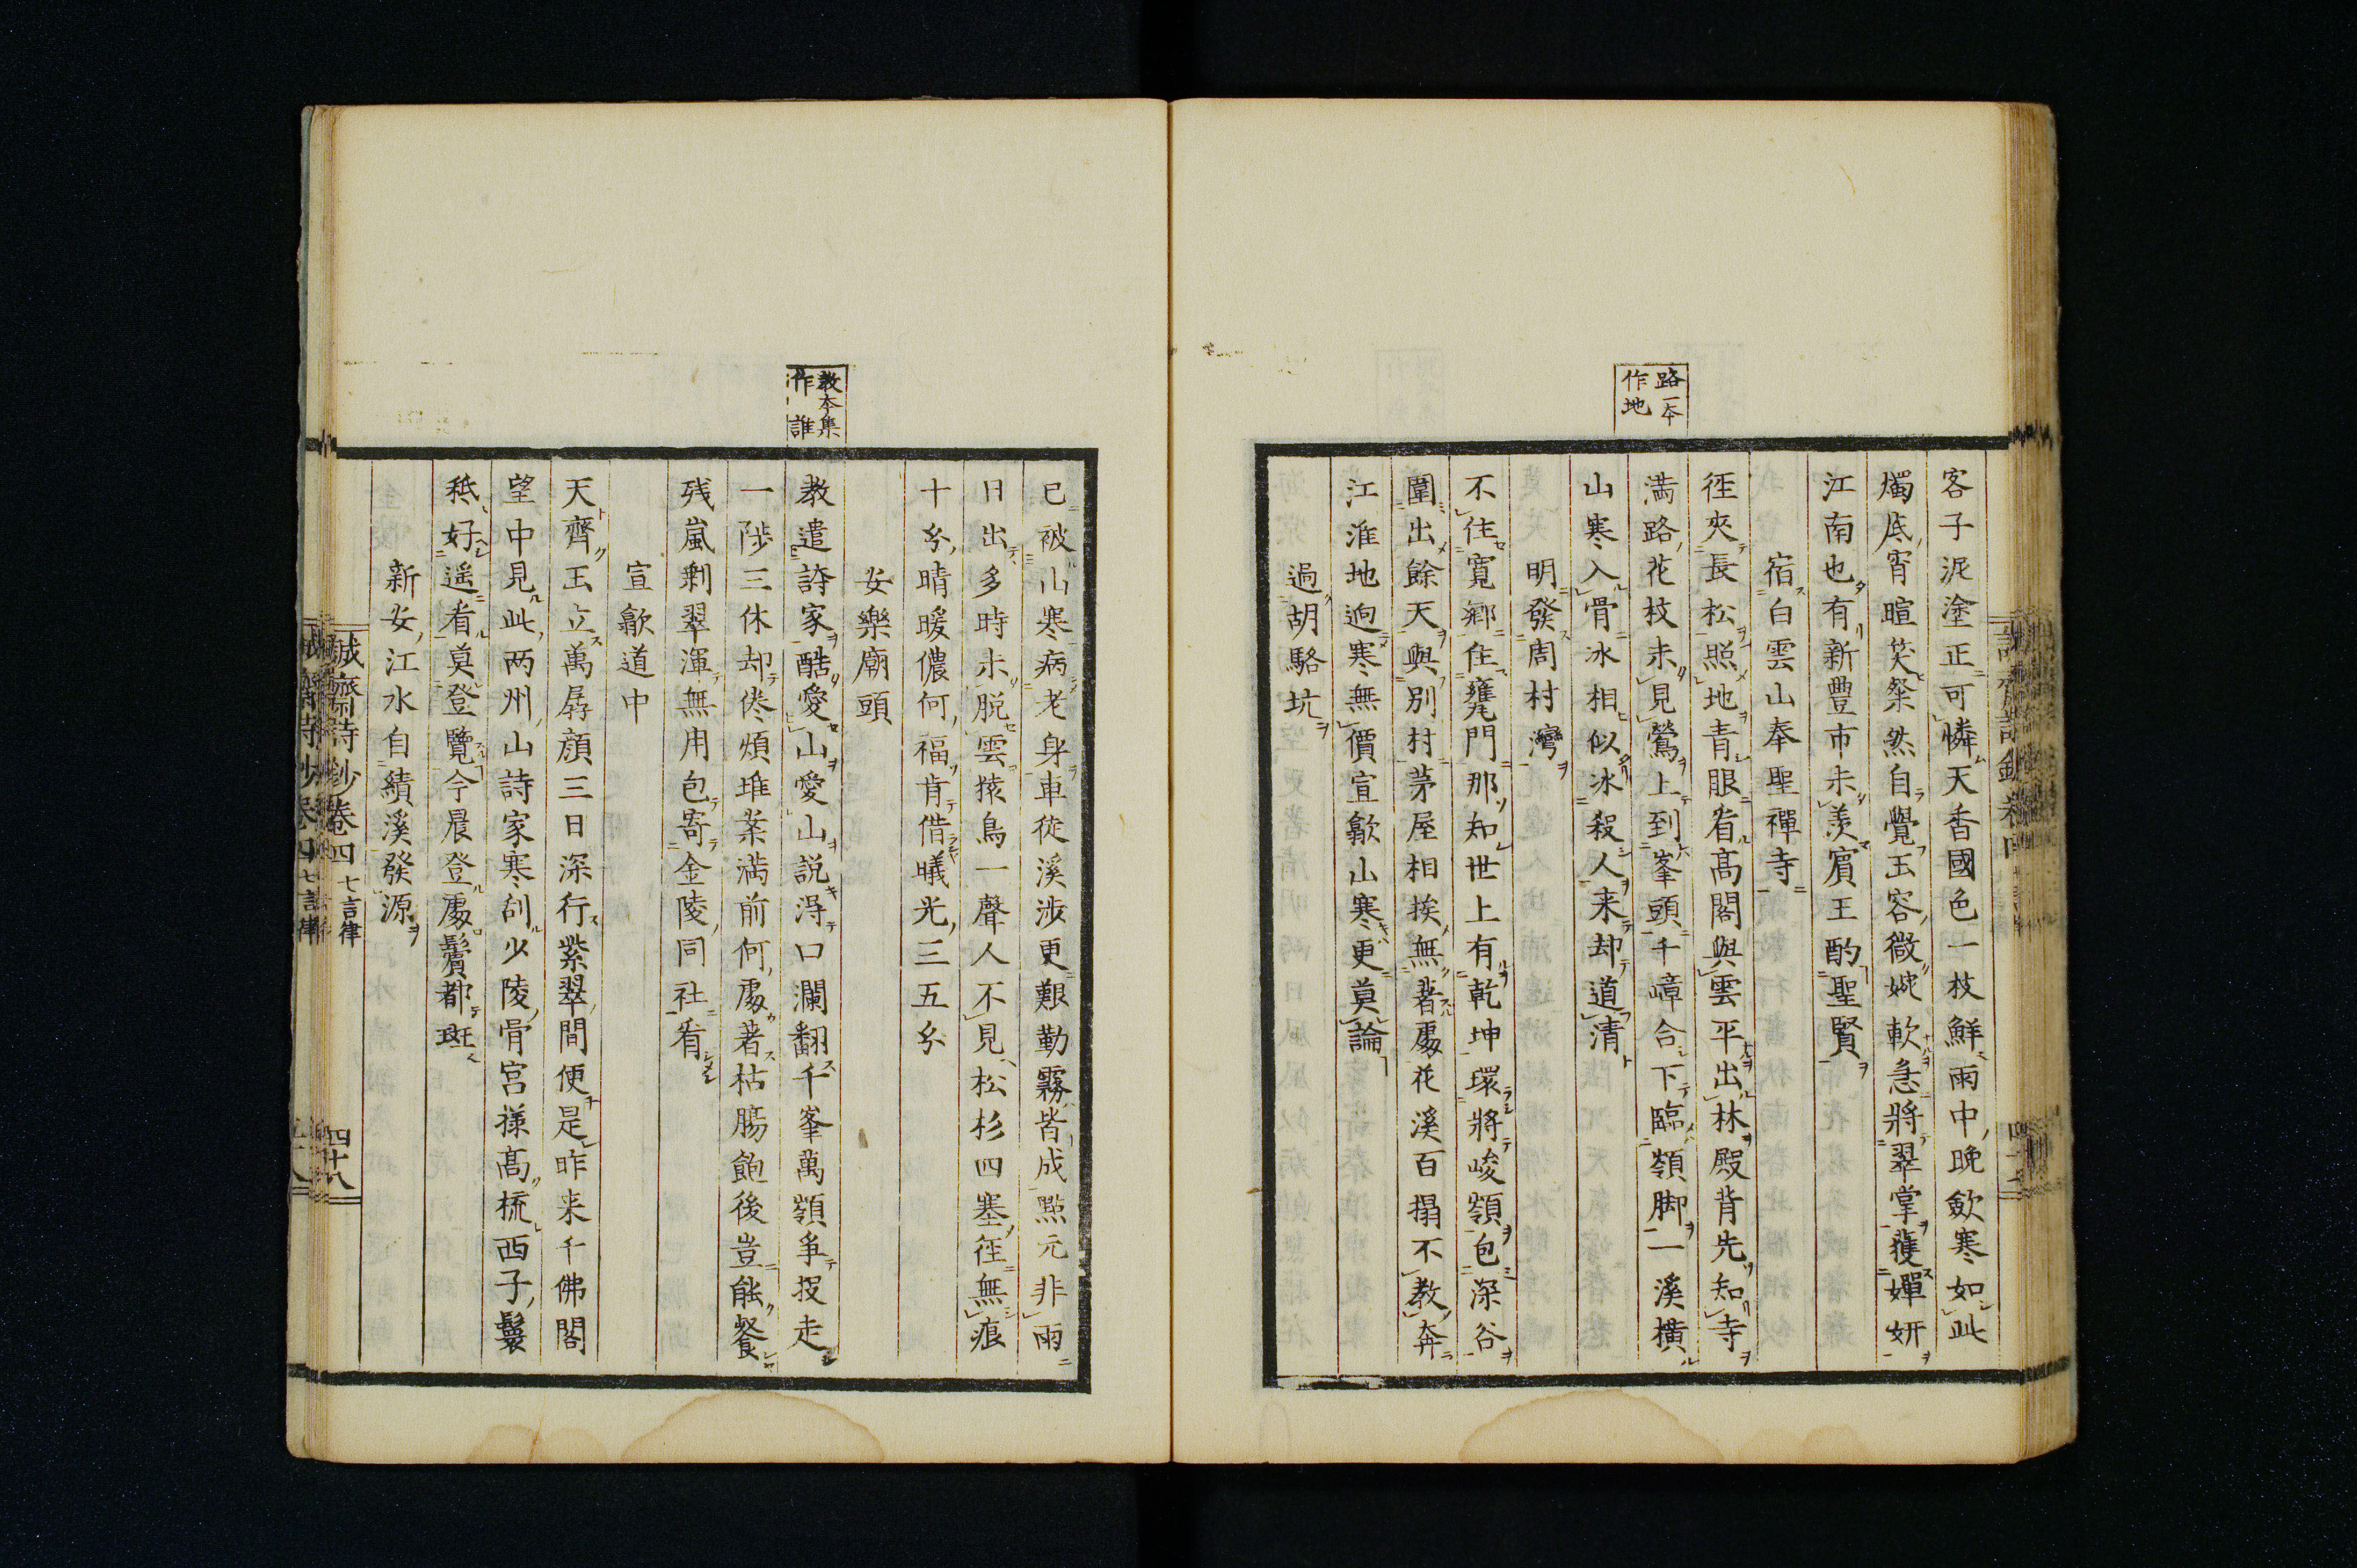 路一本
作地
客子泥塗正可憐天香國色一枝鮮雨中晚歛寒如此
燭底宵暄笑粲然自覺玉容微婉軟急將翠掌護嬋妍
江南也有新豊市未羨賔王酌聖賢
宿白雲山奉聖禪寺
徑夾長松照地青眼看髙閣與雲平出林殿背先知寺
満路花枝未見鶯上到峯頭千嶂合下臨嶺脚一溪橫
山寒入骨冰相似冰殺人来却道清
明發周村灣
不住寛郷住甕門那知世上有乾坤環將峻嶺包深谷
圍出餘天與別村茅屋相挨無著處花溪百搨不教奔
江淮地逈寒無價宣歙山寒更莫論
過胡駱坑
教本集
作誰
已被山寒病老身車從溪涉更艱勤霧皆成㸃元非雨
日出多時未脱雲猿鳥一聲人不見松杉四塞徑無痕
十分晴暖儂何福肯借曦光三五分
安樂廟頭
教遣詩家酷愛山愛山説得口瀾翻千峯萬嶺爭投走
一陟三休却倦煩堆案満前何處著枯腸飽後豈能餐
残嵐剰翠渾無用包寄金陵同社看
宣歙道中
天齊玉立萬孱顔三日深行紫翠間便是昨来千佛閣
望中見此兩州山詩家寒刮少陵骨宮様髙梳西子鬟
秪好遥看莫登覽今晨登處鬢都斑
新安江水自績溪發源
誠齋詩鈔卷四 七言律 四十八